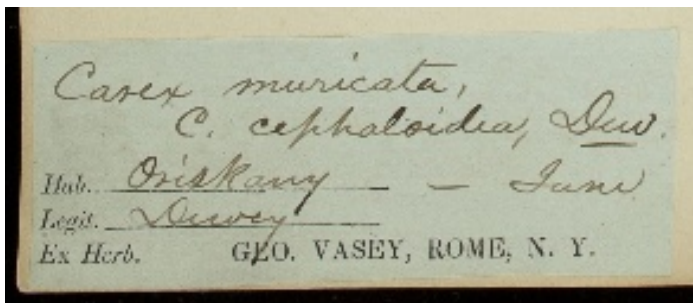 Carex muricata,
C. cephaloidea, Dew.
Hab. Oriskany — — June
Legit. Dewey
Ex Herb. GEO. VASEY, ROME, N. Y.